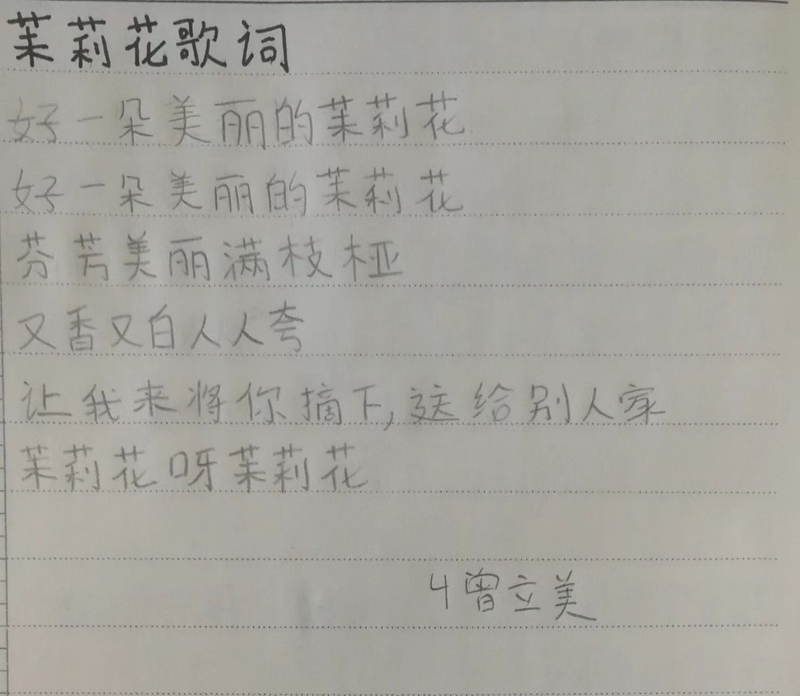 茉莉花歌词
好一朵美丽的茉莉花
好一朵美丽的茉莉花
芬芳美丽满枝桠
又香又白人人夸
让我来将你摘下,送给别人家
茉莉花呀茉莉花
4曾立美